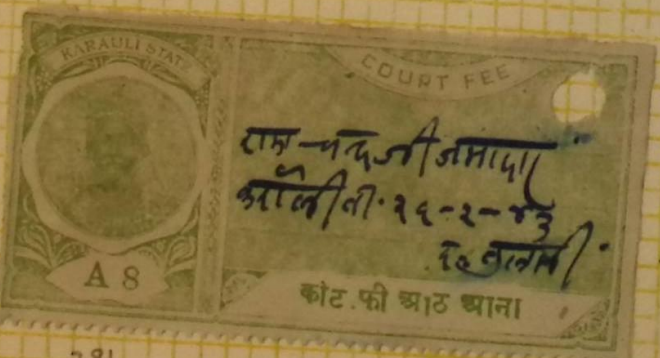 KARAULI STATE
COURT FEE
राम चन्द्र जी
करौली ती. २६-२-४३
A 8
कोट.फी आठ आना